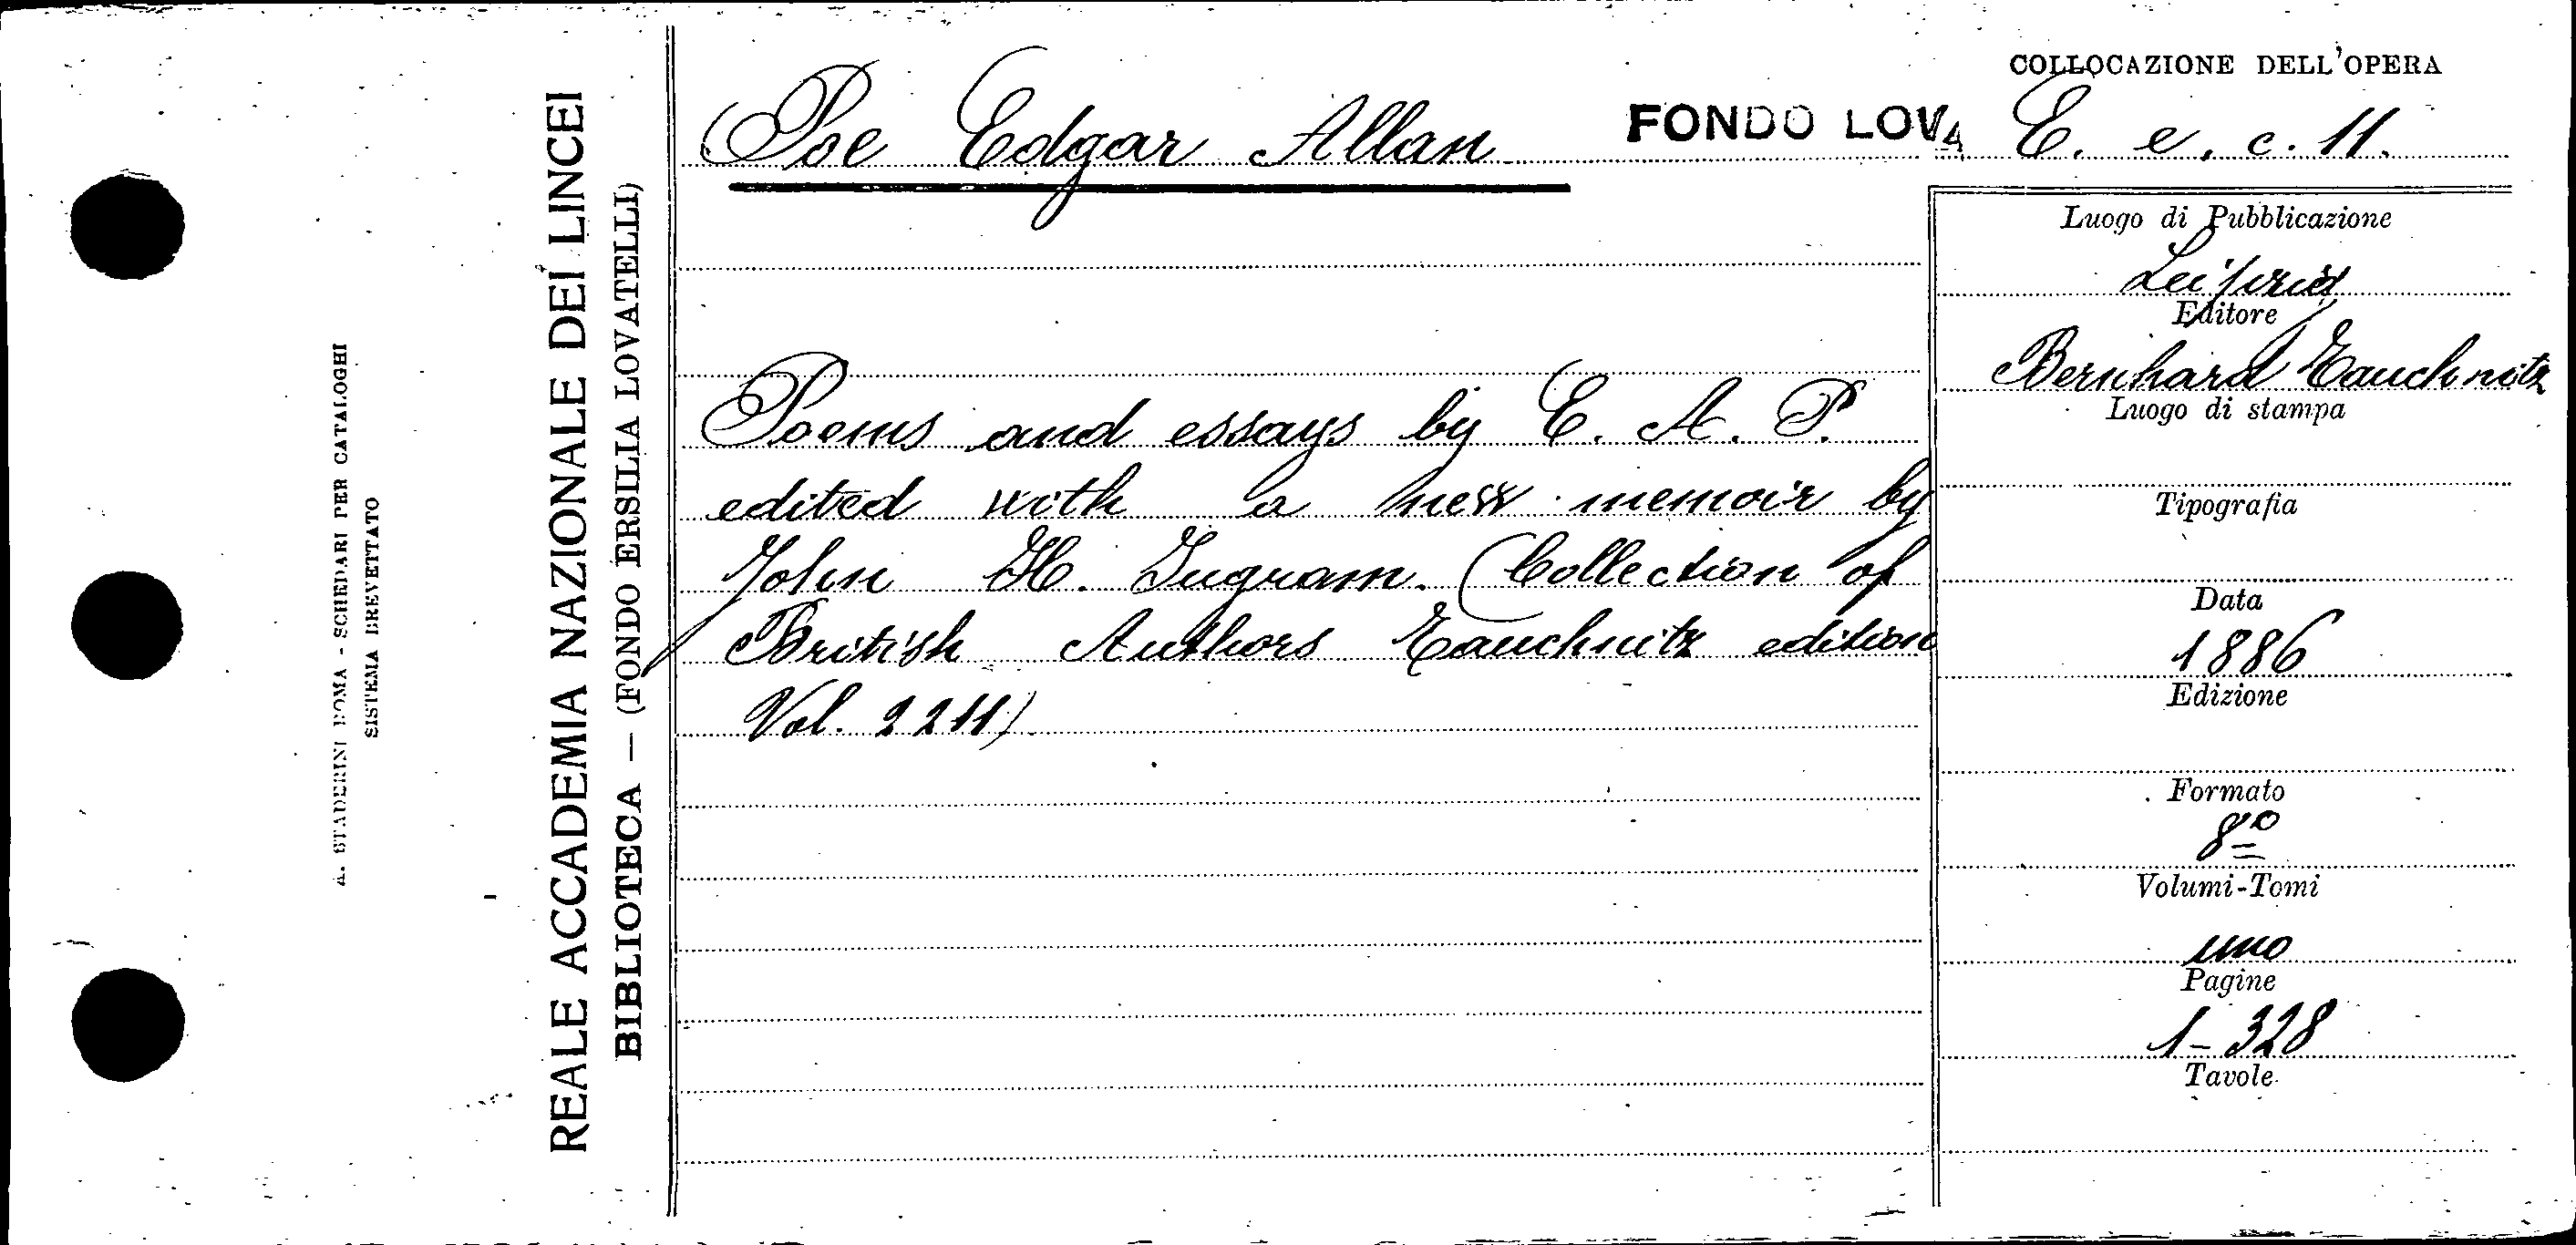 A. STADERINI ROMA - SCHEDARI PER CATALOGHI
SISTEMA BREVETTATO
REALE ACCADEMIA NAZIONALE DEI LINCEI
BIBLIOTECA — (FONDO ERSILIA LOVATELLI)
Poe Edgar Allan
FONDO LOVA
Poems and essays by E. A. P.
edited with a new memoir by
John H. Ingram. (Collection of
British Authors Tauchnitz edition
Vol. 2211)
COLLOCAZIONE DELL'OPERA
E. e. c. 11.
Luogo di Pubblicazione
Leipzig
Editore
Bernhard Tauchnitz
Luogo di stampa
Tipografia
Data
1886
Edizione
Formato
8º
Volumi-Tomi
uno
Pagine
1-328
Tavole